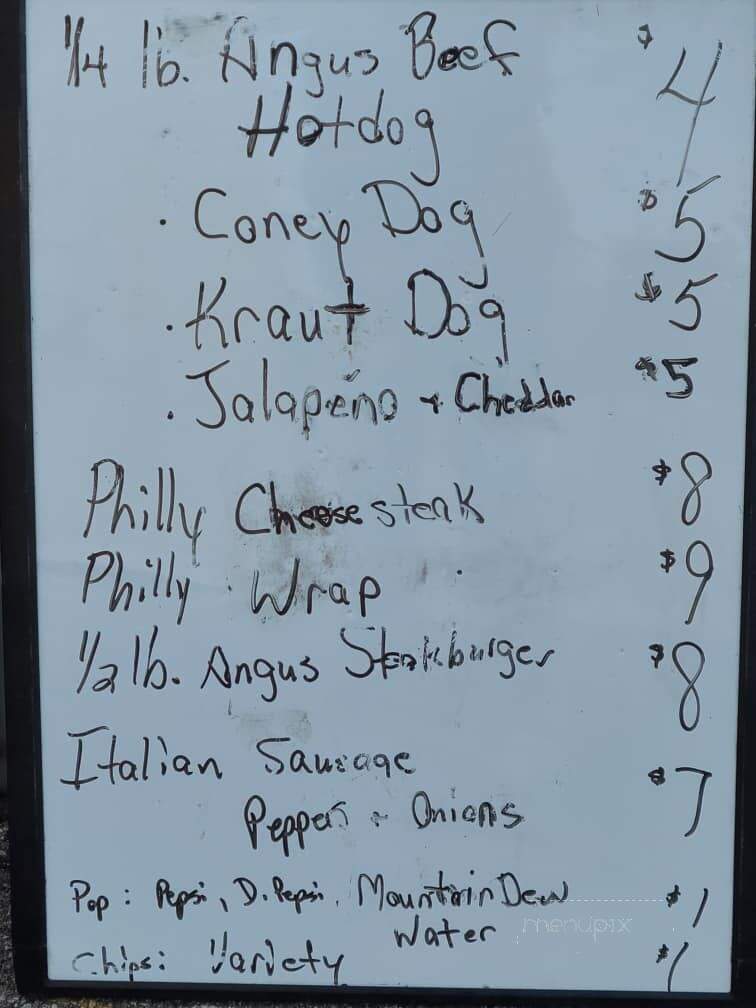 1/4 lb. Angus Beef $4
Hotdog
· Coney Dog $5
· Kraut Dog $5
· Jalapeño + Cheddar $5
Philly Cheesesteak $8
Philly Wrap $9
1/2 lb. Angus Steakburger $8
Italian Sausage
Peppers + Onions $7
Pop: Pepsi, D. Pepsi, Mountain Dew $1
Water
Chips: Variety $1
menupix